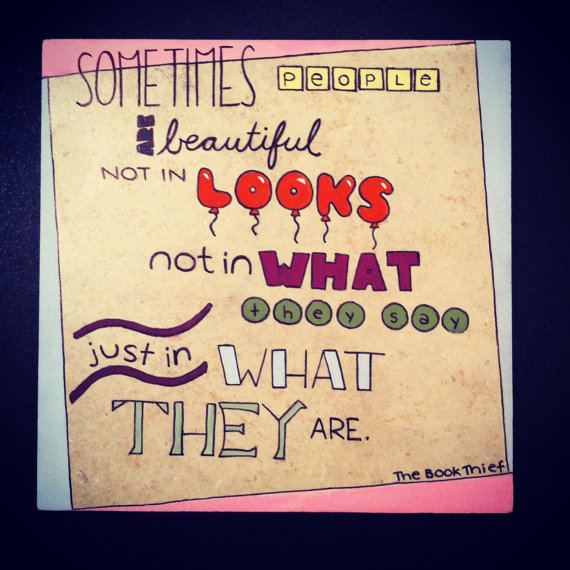 SOMETIMES PEOPLE
ARE beautiful
NOT IN LOOKS
not in WHAT
they say
just in WHAT
THEY ARE.
The Book Thief